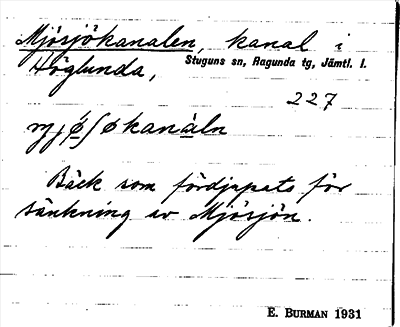 Mjösjökanalen, kanal i
Höglunda,
Stuguns sn, Ragunda tg, Jämtl. l.
227
mjø̀ʃøkanàln
Bäck som fördjupats för
sänkning av Mjösjön.
E. BURMAN 1931